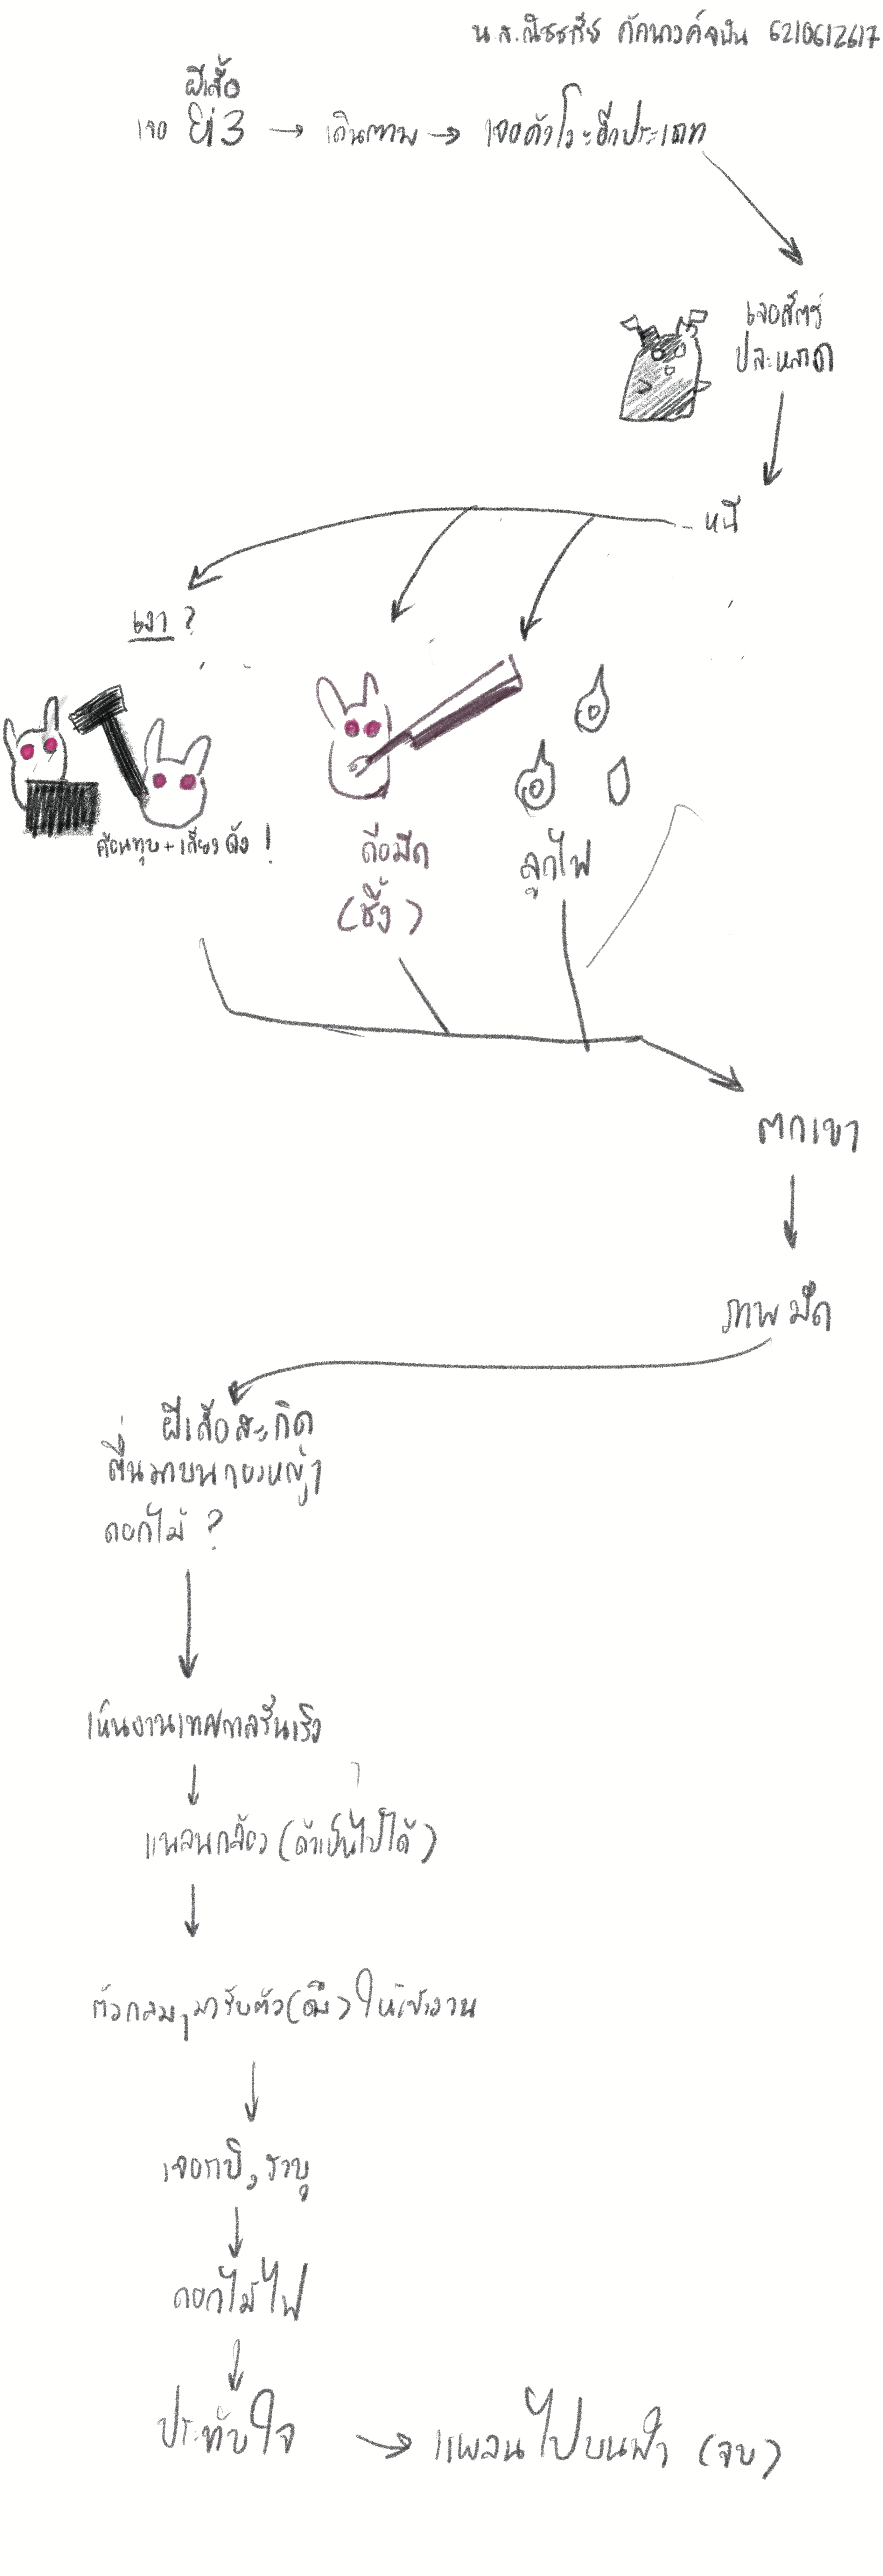 น.ส. 6210612617
ผีเสื้อ
เจอ → เดินตาม → เจอตัว อีกประเภท
เจอสัตว์
ปละหลาด
- หนี
เงา ?
ค้อนทุบ + เสียงดัง !
ถือมีด
(ชิ้ง)
ลูกไฟ
ตกเขา
ภาพมืด
ผีเสื้อสะกิด
ตื่นมาบนกองหญ้า
ดอกไม้ ?
เห็นงานเทศกาลรื่นเริง
แพลนกล้อง (ถ้าเป็นไปได้)
ตัวกลมๆมารับตัว ให้เข้างาน
ดอกไม้ไฟ
ประทับใจ → แพลนไปบนฟ้า (จบ)